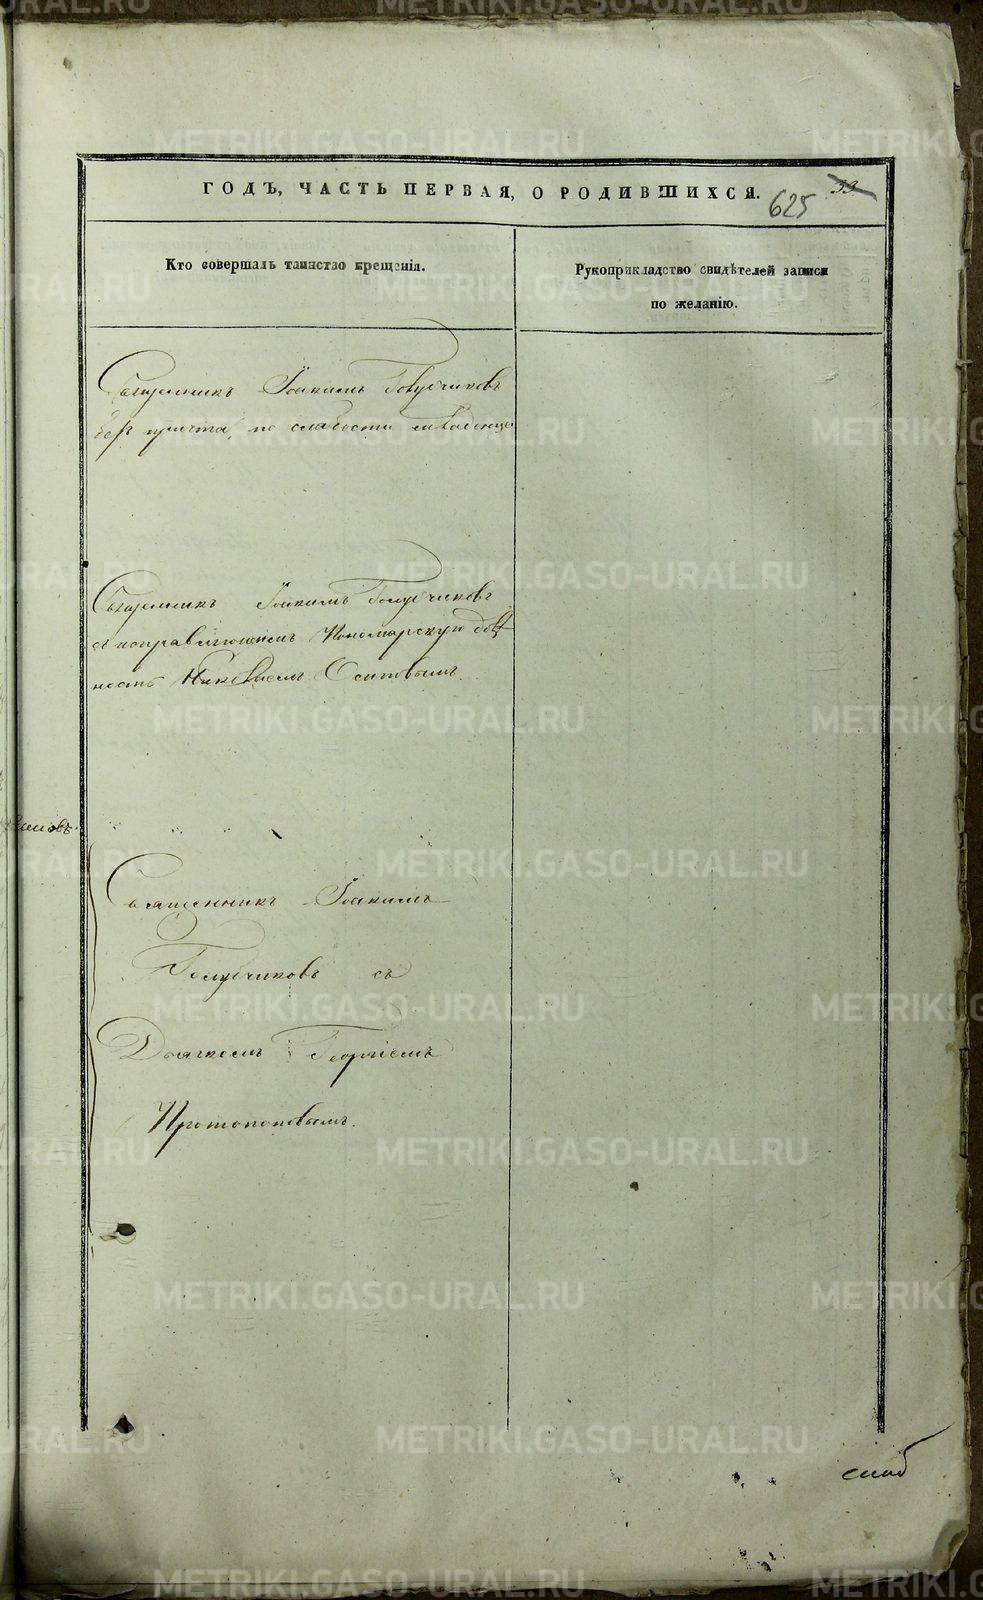 ГОДЪ, ЧАСТЬ ПЕРВАЯ, О РОДИВШИХСЯ.
33
625
Кто совершалъ таинство крещенія.
Рукоприкладство свидѣтелей записи
по желанію.
Священникъ Іоакимъ Голубчиковъ
безъ причта, по слабости младенца
Священникъ Іоакимъ Голубчиковъ
съ исправляющимъ Пономарскую долж
ность Осиповымъ.
Священникъ Іоакимъ
Голубчиковъ съ
Дьячкомъ Георгіемъ
Протопоповымъ.
METRIKI.GASO-URAL.RU